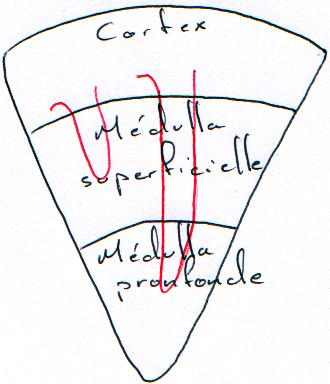 Cortex
Médulla
superficielle
Médulla
pronfonde